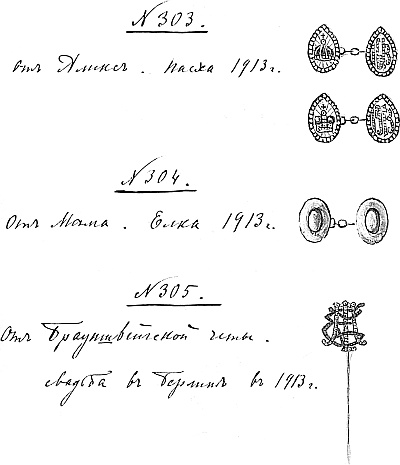 N 303.
отъ Аликсъ. пасха 1913 г.
N 304.
отъ Мама. Елка 1913 г.
N 305.
Отъ Брауншвейгской четы.
свадьба въ Берлинѣ въ 1913 г.